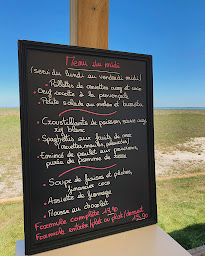 Menu du midi
(servi du lundi au vendredi midi)
• Rillettes de crevettes curry et coco
• Oeuf cocotte à la provençale
• Petite salade au melon et burrata
• Croustillants de poisson sauce curry
riz blanc
• Spaghettis aux fruits de mer
(crevettes, moules, palourdes)
• Emincé de poulet aux poivrons,
purée de pomme de terre
• Soupe de fraises et pêches,
financier coco
• Assiette de fromage
• Mousse au chocolat
Formule complète 19,90
Formule entrée/plat ou plat/dessert
15,90